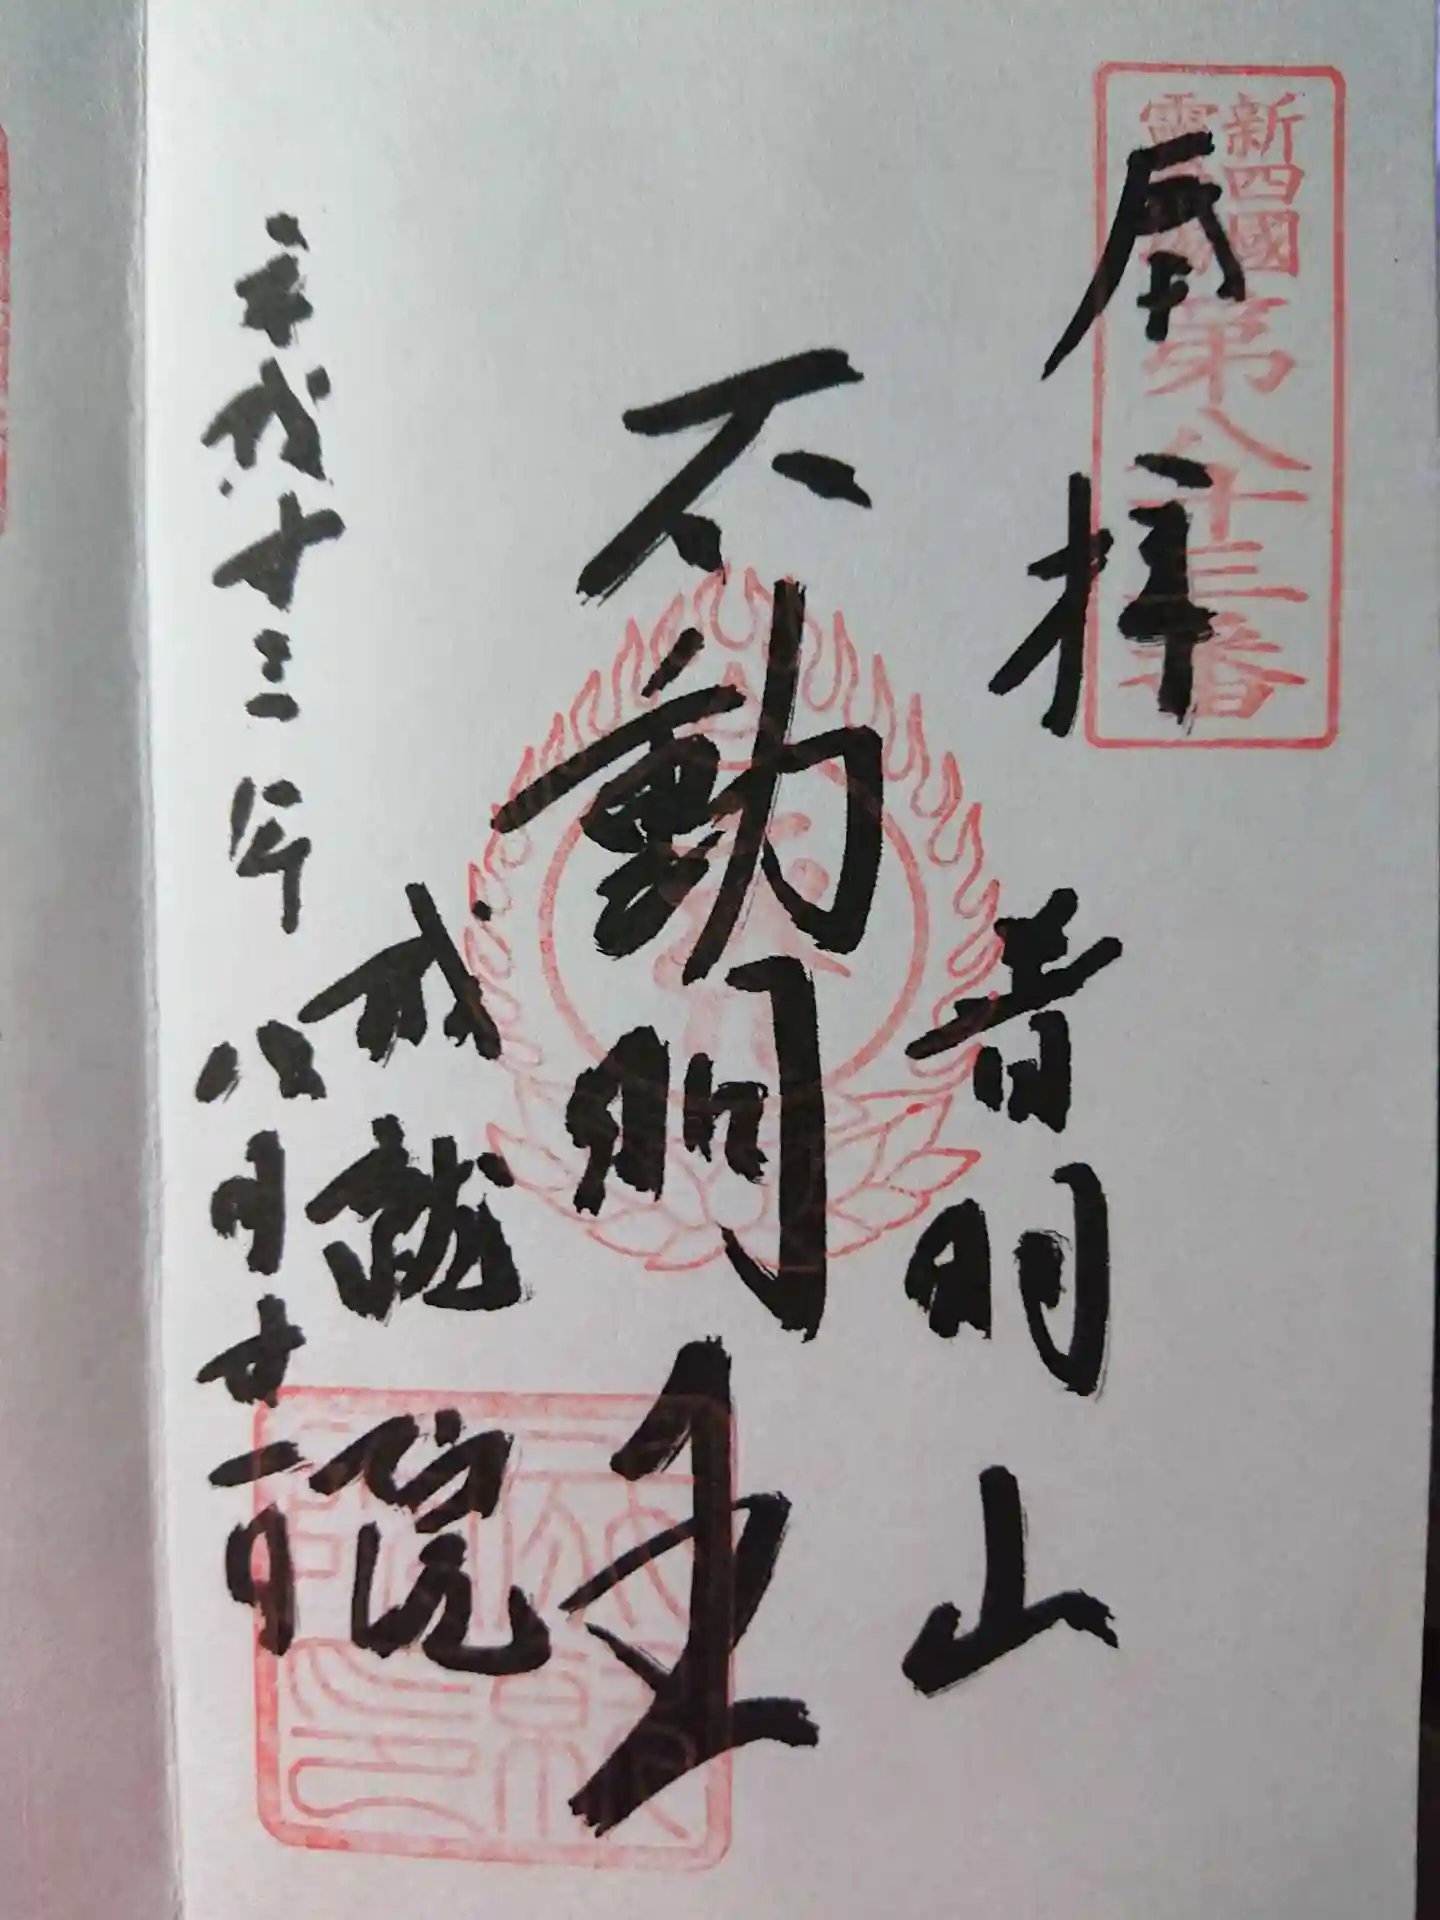 新四國
霊
第八十三番
奉拝
音羽山
不動明王
成就院
平成十三年
八月廿一日